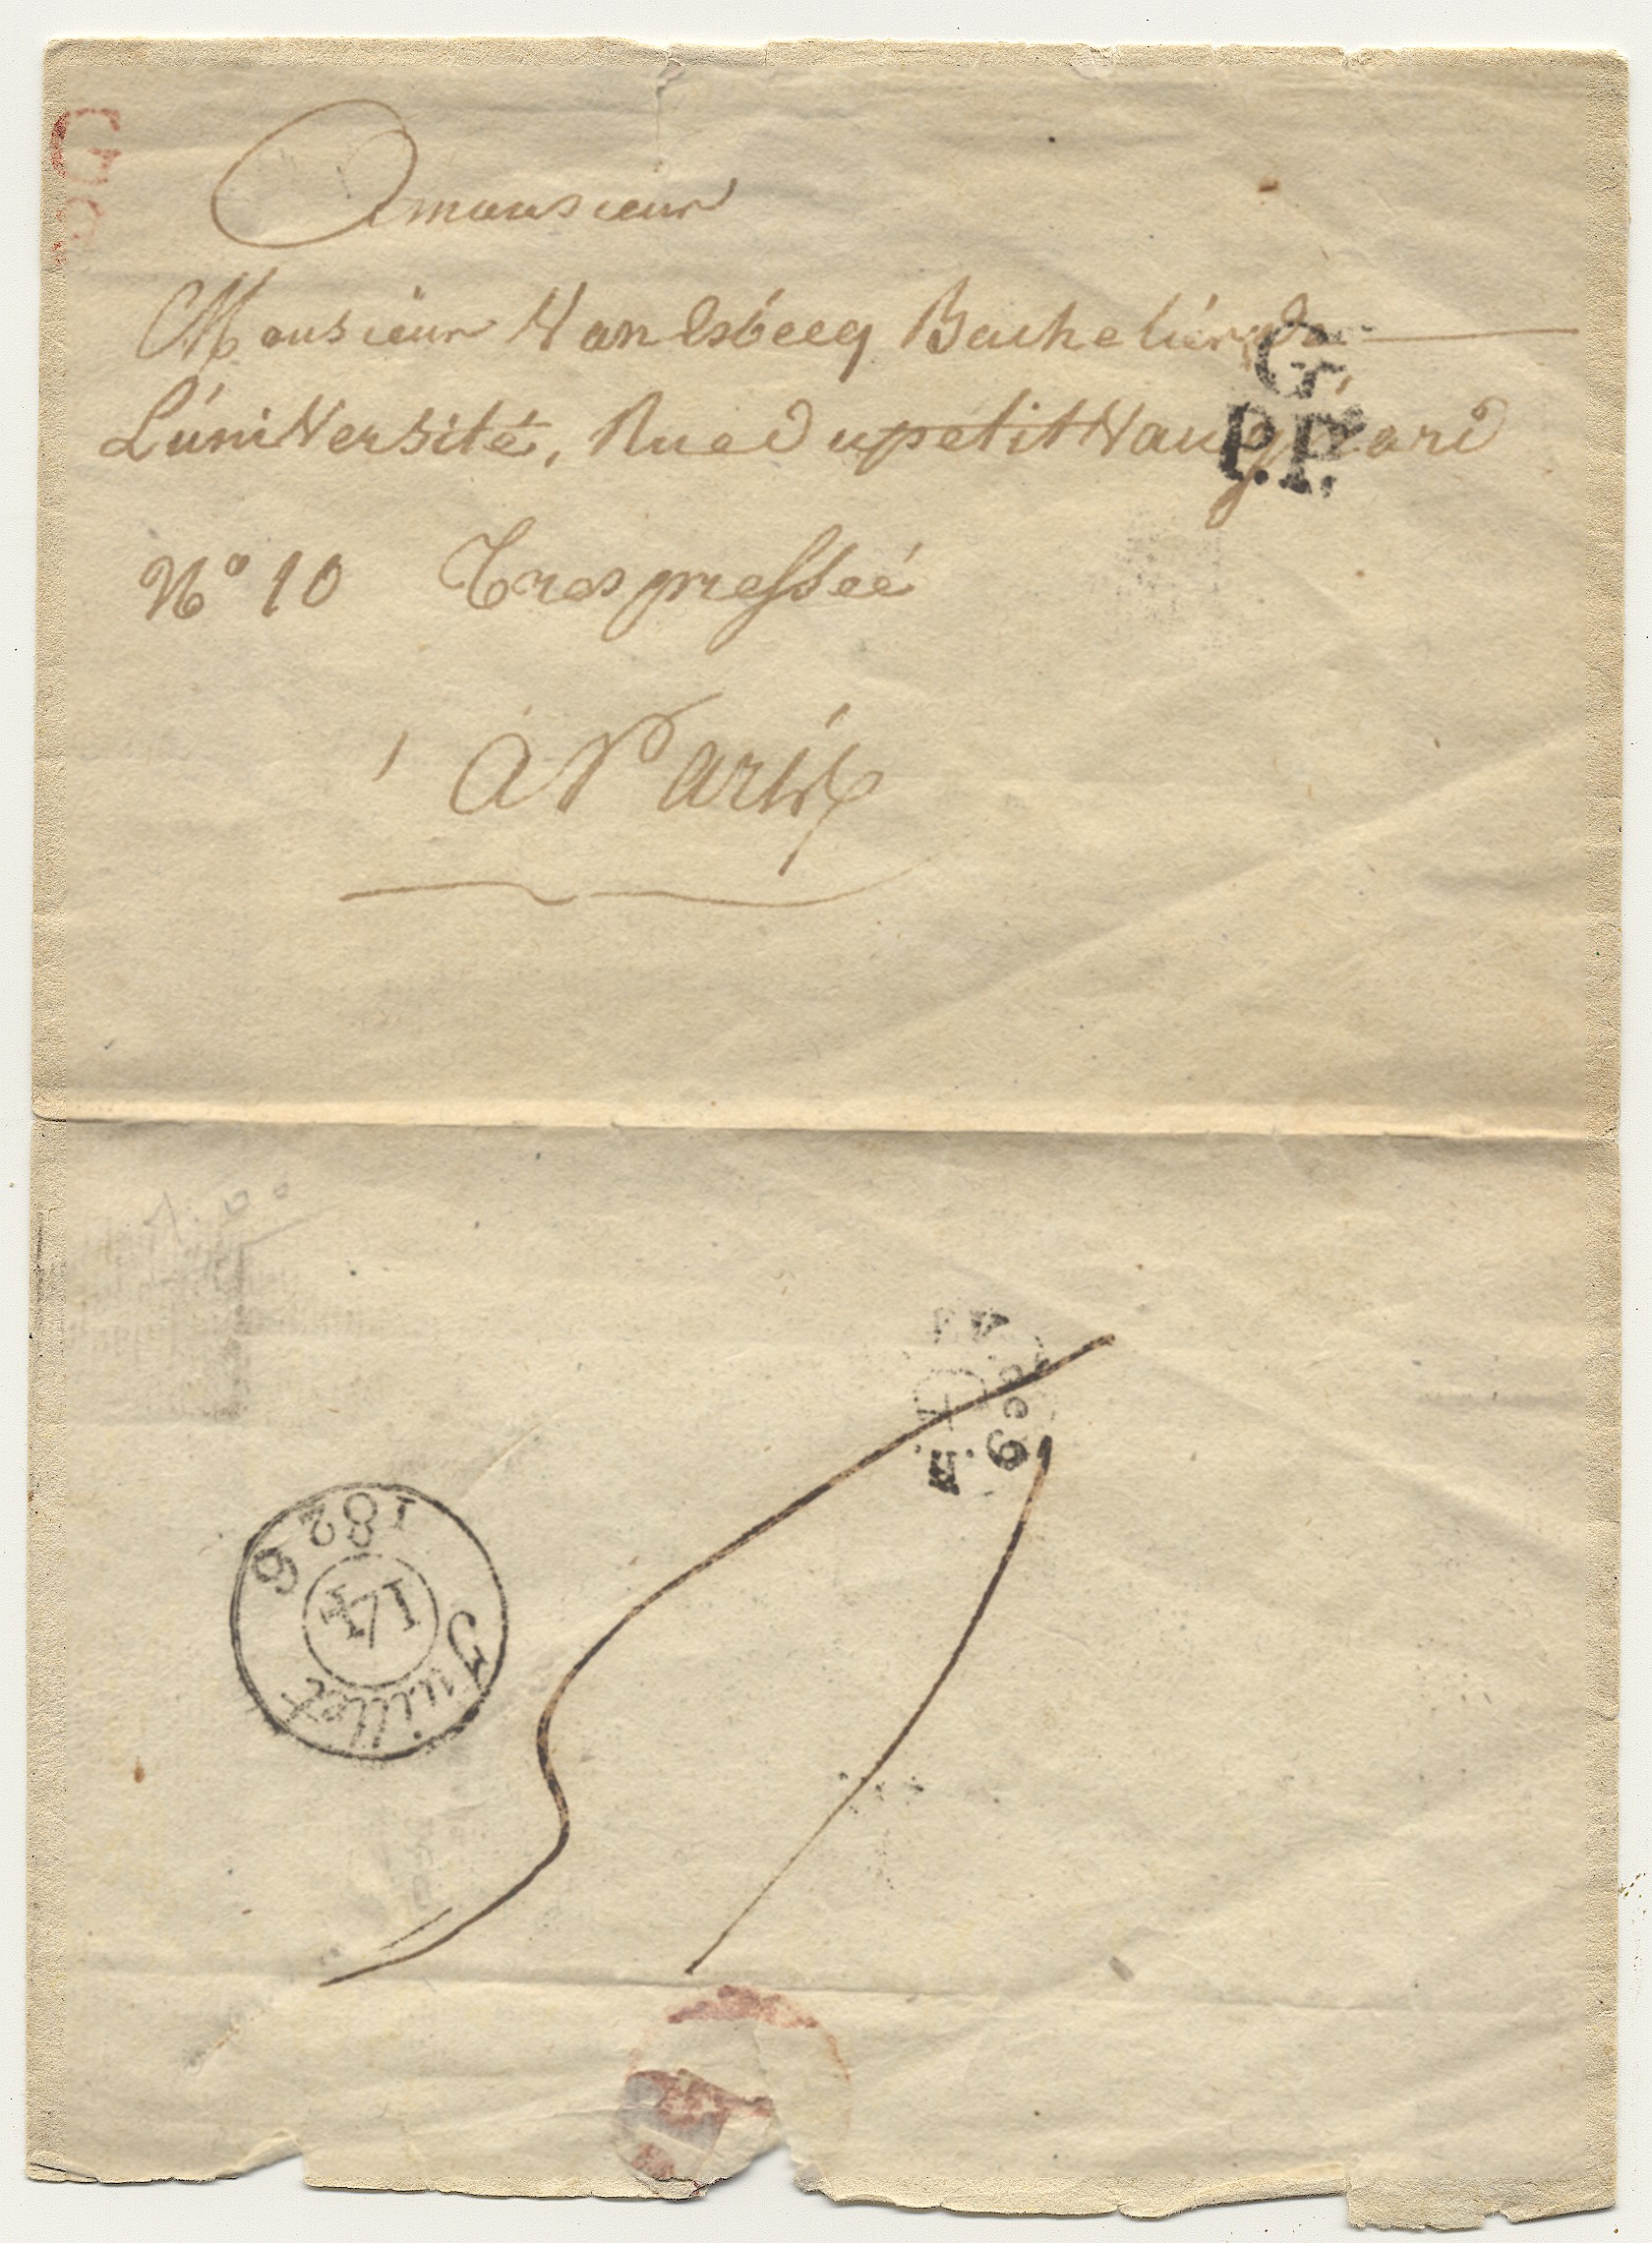 A monsieur
Monsieur Vanesbecq Bachelier de
L'úniversité, Rue du petit Vaugirard
N° 10 Tres presseé
a Paris
G.
P.P.
1826
14
Juillet